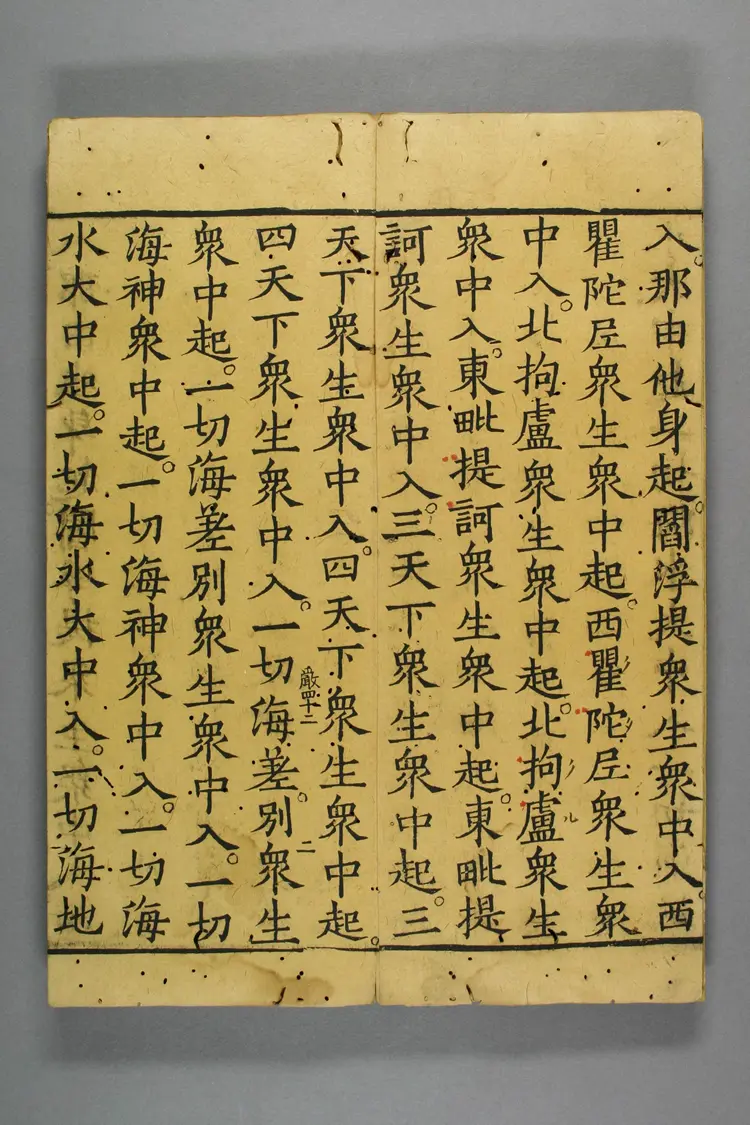 入那由他身起閻浮提衆生衆中入西
瞿陀尼衆生衆中起西瞿陀尼衆生衆
中入北拘盧衆生衆中起北拘盧衆生
衆中入東毗提訶衆生衆中起東毗提
訶衆生衆中入三天下衆生衆中起三
天下衆生衆中入四天下衆生衆中起
嚴四十二
二
四天下衆生衆中入一切海差別衆生
衆中起一切海差別衆生衆中入一切
海神衆中起一切海神衆中入一切海
水大中起一切海水大中入一切海地